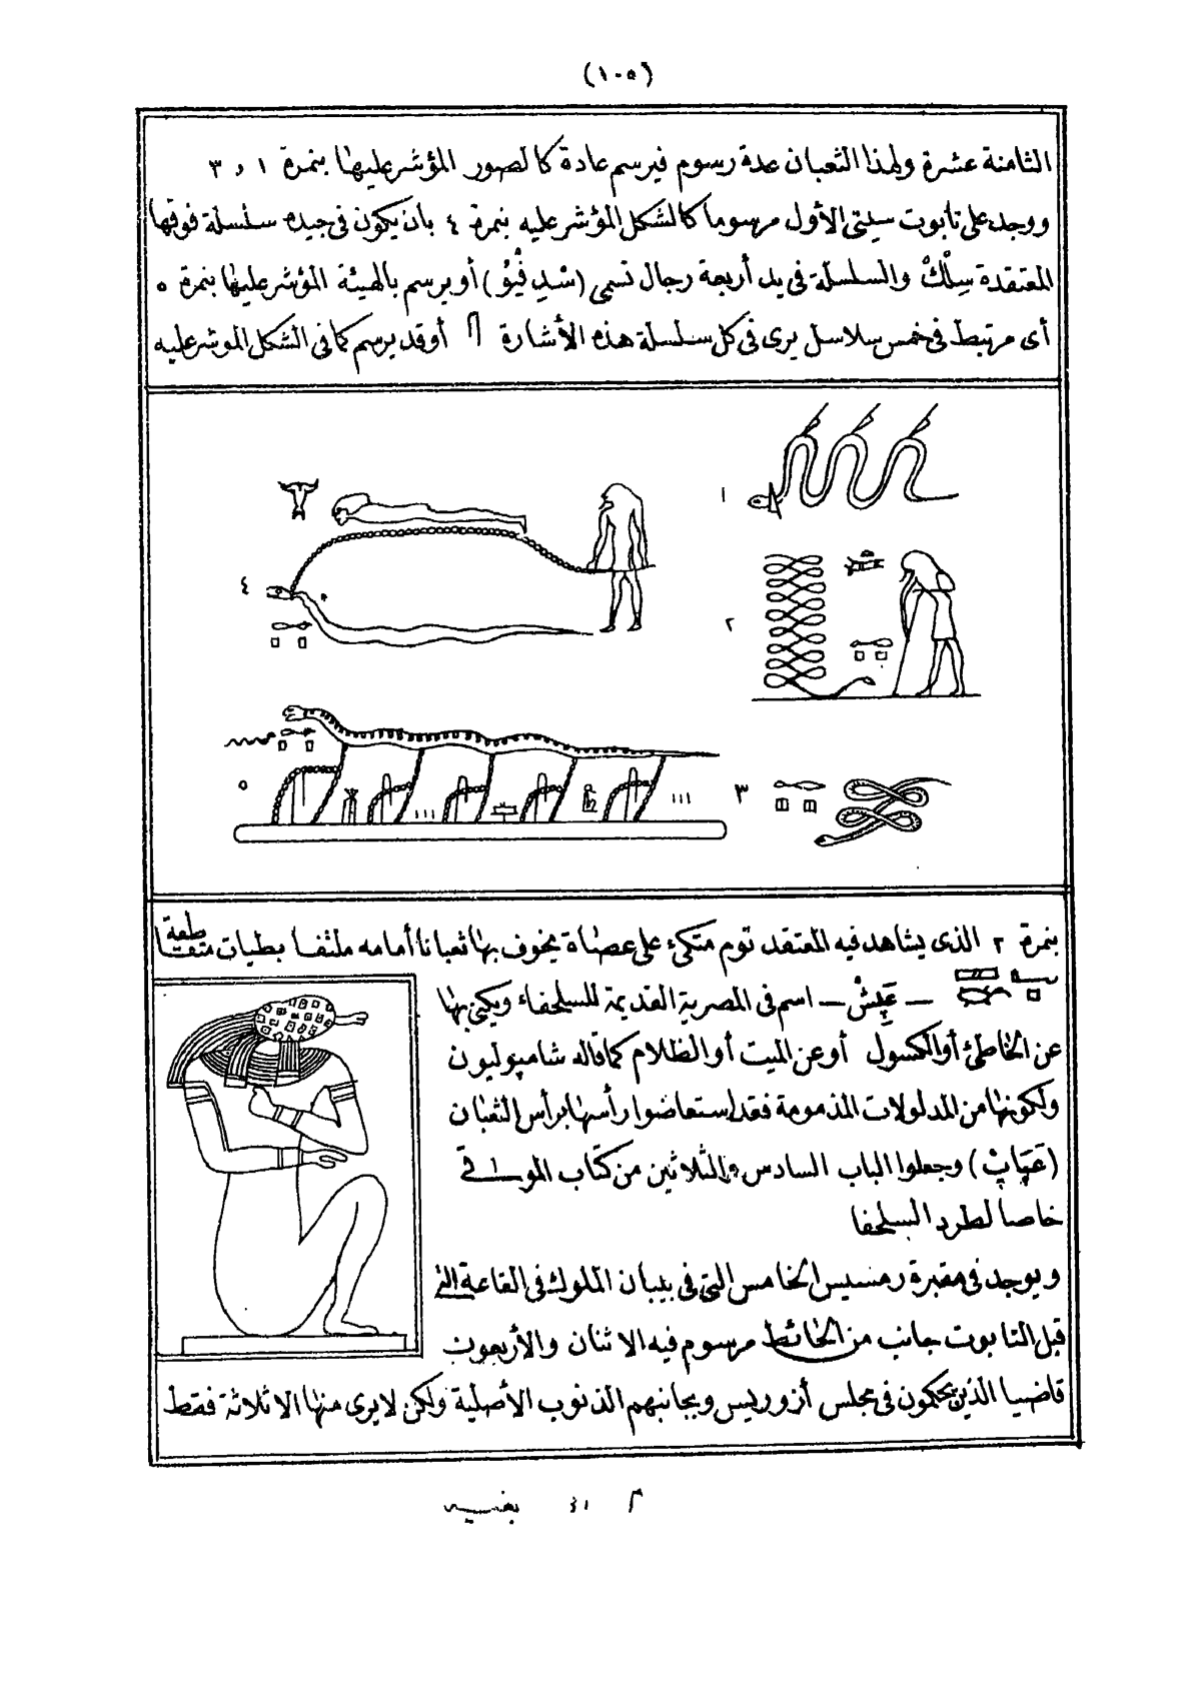 (١٠٥)
الثامنة عشرة ولهذا الثعبان عدة رسوم فيرسم عادة كالصور المؤشر عليها بنمرة ١ و ٣
ووجد على تابوت سيتى الأول مرسوما كالشكل المؤشر عليه بنمرة ٤ بأن يكون فى جيده سلسلة فوقها
المعتقدة سِلْكْ والسلسلة فى يد أربعة رجال تسمى (سْدِفْيُو) أو يرسم بالهيئة المؤشر عليها بنمرة ٥
أى مرتبط فى خمس سلاسل يرى فى كل سلسلة هذه الأشارة أو قد يرسم كما فى الشكل الموشر عليه
١
٤
٢
٥
٣
بنمرة ٢ الذى يشاهد فيه المعتقد توم متكئ على عصاة يخوف بها ثعبانا أمامه ملتفا بطيات متقاطعة
— عَپِشْ — اسم فى المصرية القديمة للسلحفاء ويكنى بها
عن الخاطئ أو الكسول أو عن الميت أو الظلام كما قاله شامپوليون
ولكونها من المدلولات المذمومة فقد استعاضوا رأسها برأس الثعبان
(عَپَاپْ) وجعلوا الباب السادس والثلاثين من كتاب الموتى فى
خاصا لطرد السلحفا
ويوجد فى مقبرة رمسيس الخامس التى فى بيبان الملوك فى القاعة التى
قبل التابوت جانب من الحائط مرسوم فيه الاثنان والأربعون
قاضيا الذين يحكمون فى مجلس أزوريس وبجانبهم الذنوب الأصلية ولكن لا يرى منها الا ثلاثة فقط
م ١٤ بغيـه